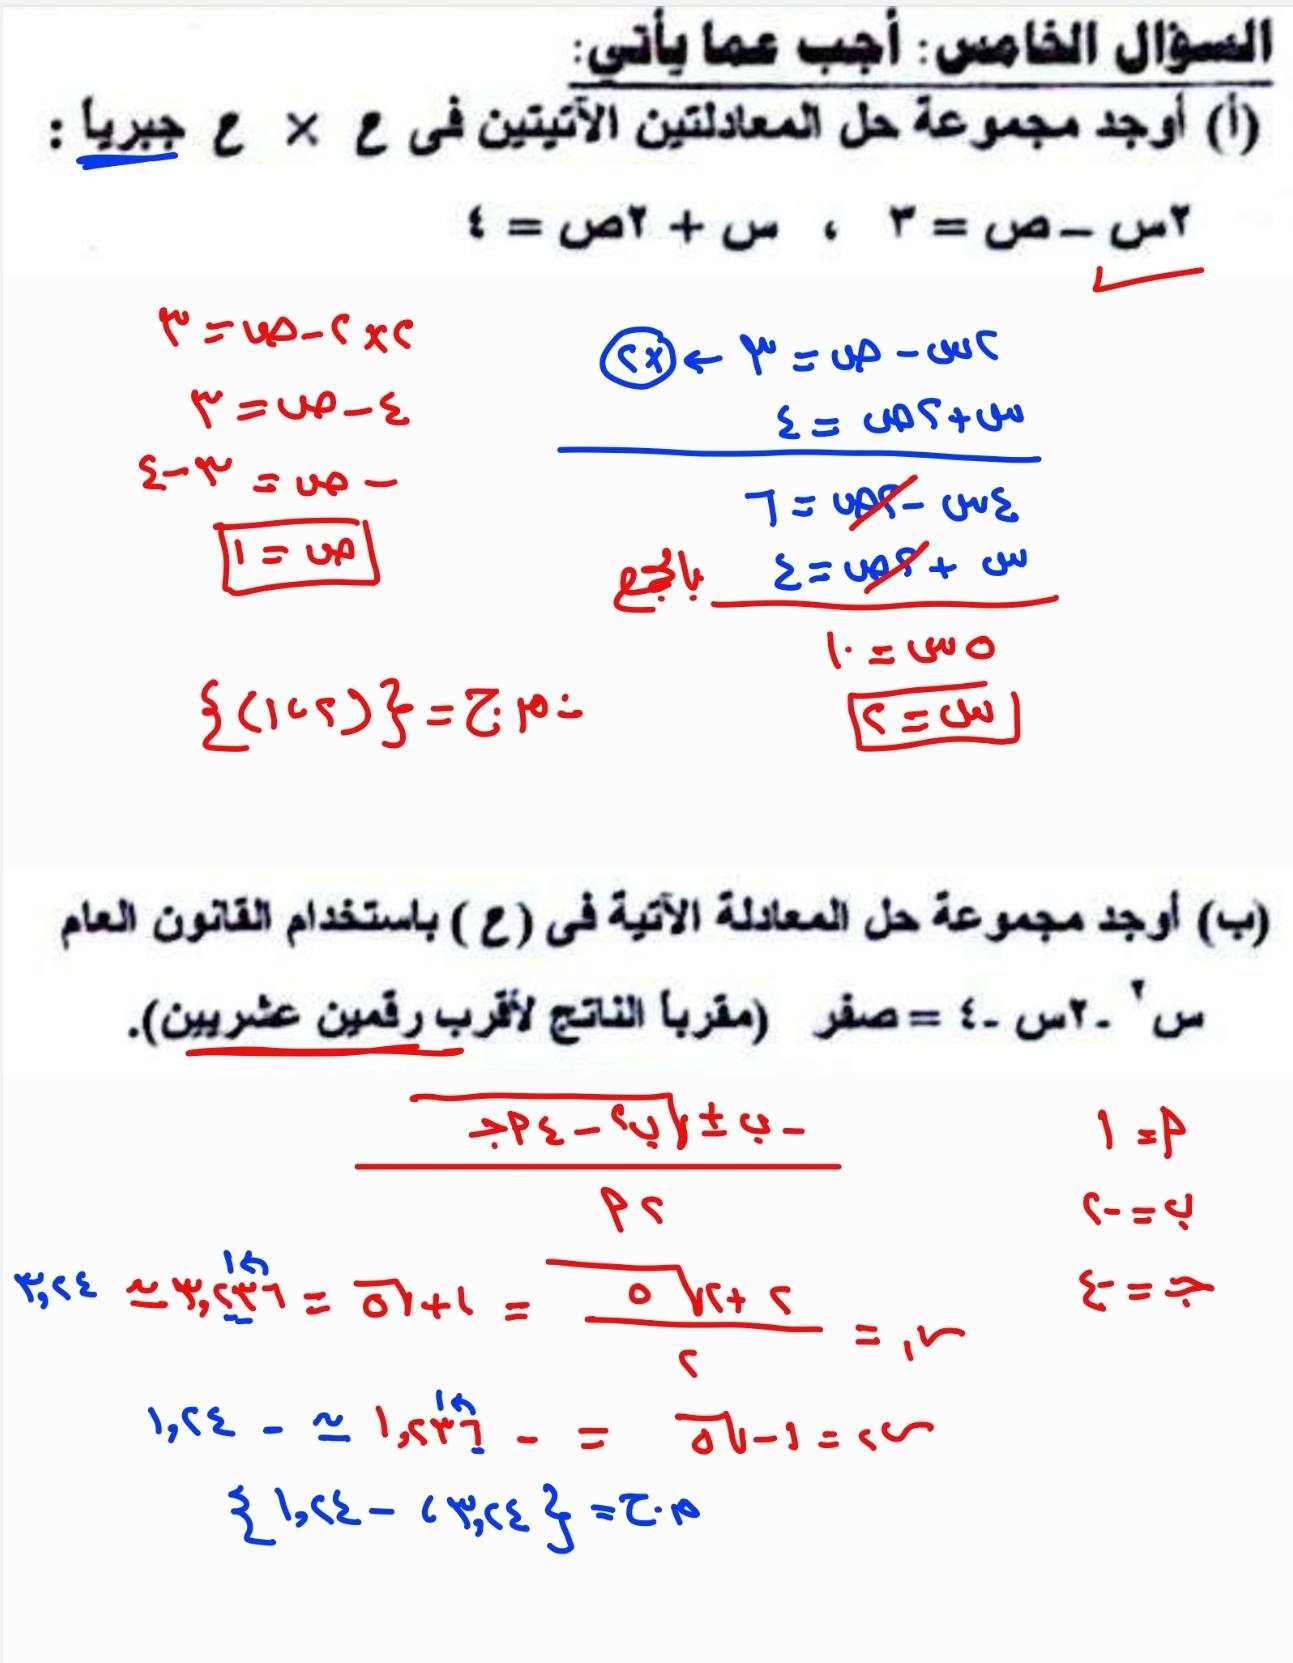 السؤال الخامس: أجب عما يأتي:
(أ) أوجد مجموعة حل المعادلتين الآتيتين فى ع × ع جبرياً :
٢س – ص = ٣ ، س + ٢ص = ٤
٢س – ص = ٣ ← ×٢
س + ٢ص = ٤
٤س – ٢ص = ٦
س + ٢ص = ٤ بالجمع
٥س = ١٠
س = ٢
٢×٢ – ص = ٣
٤ – ص = ٣
– ص = ٣ – ٤
ص = ١
∴ م.ح = {(٢، ١)}
(ب) أوجد مجموعة حل المعادلة الآتية فى (ع) باستخدام القانون العام
س٢ - ٢س - ٤ = صفر (مقرباً الناتج لأقرب رقمين عشريين).
م = ١
ب = -٢
جـ = -٤
– ب ± √ب٢ – ٤م جـ
٢م
س١ = ٢ + ٢√٥ / ٢ = ١ + √٥ = ٣,٢٣٦ ≃ ٣,٢٤
س٢ = ١ – √٥ = – ١,٢٣٦ ≃ – ١,٢٤
م.ح = {٣,٢٤ ، – ١,٢٤}